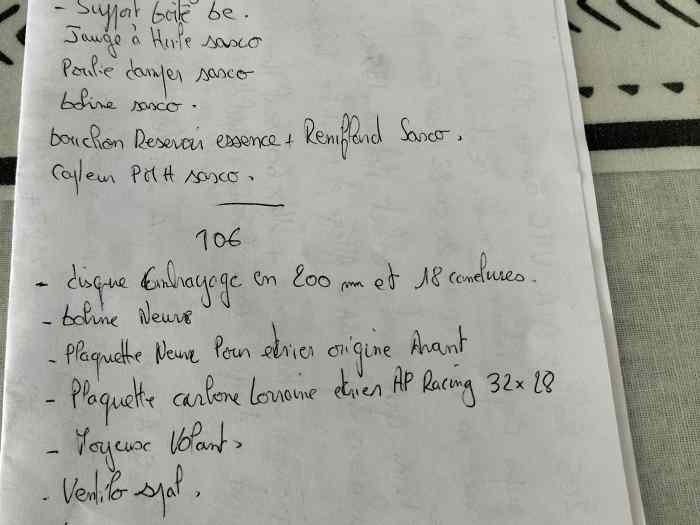 - Support boîte be.
Jauge à Huile sasco
Poulie damper sasco
bobine sasco.
bouchon Reservoir essence + Reniflard Sasco.
Capteur PMH sasco.
106
- disque Embrayage en 200 mm et 18 canelures.
- bobine Neuve
- Plaquette Neuve Pour etrier origine Avant
- Plaquette carbone Lorraine etrier AP Racing 32x28
- Moyeux Volant,
- Ventilo spal,